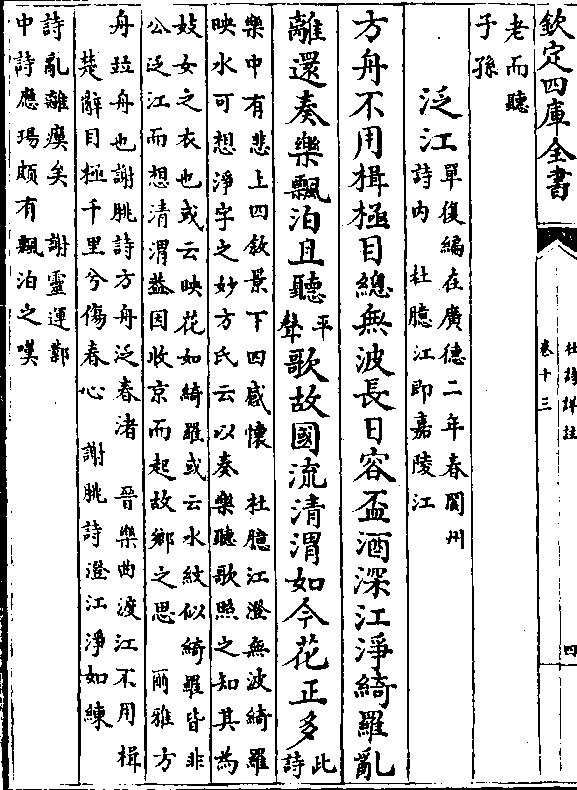 欽定四庫全書
杜詩詳註
卷十三
四
老而聽
子孫
泛江
單復編在廣德二年春閬州
詩內 杜臆江即嘉陵江
方舟不用楫極目總無波長日容盃酒深江淨綺羅亂
離還奏樂飄泊且聽平聲歌故國流清渭如今花正多
此
詩
樂中有悲上四敘景下四感懷 杜臆江澄無波綺羅
映水可想淨字之妙方氏云以奏樂聽歌照之知其為
妓女之衣也或云映花如綺羅或云水紋似綺羅皆非
公泛江而想清渭蓋因收京而起故鄉之思 爾雅方
舟竝舟也謝朓詩方舟泛春渚 晉樂曲渡江不用楫
楚辭目極千里兮傷春心 謝朓詩澄江淨如練
詩亂離瘼矣 謝靈運鄴
中詩應瑒頗有飄泊之嘆